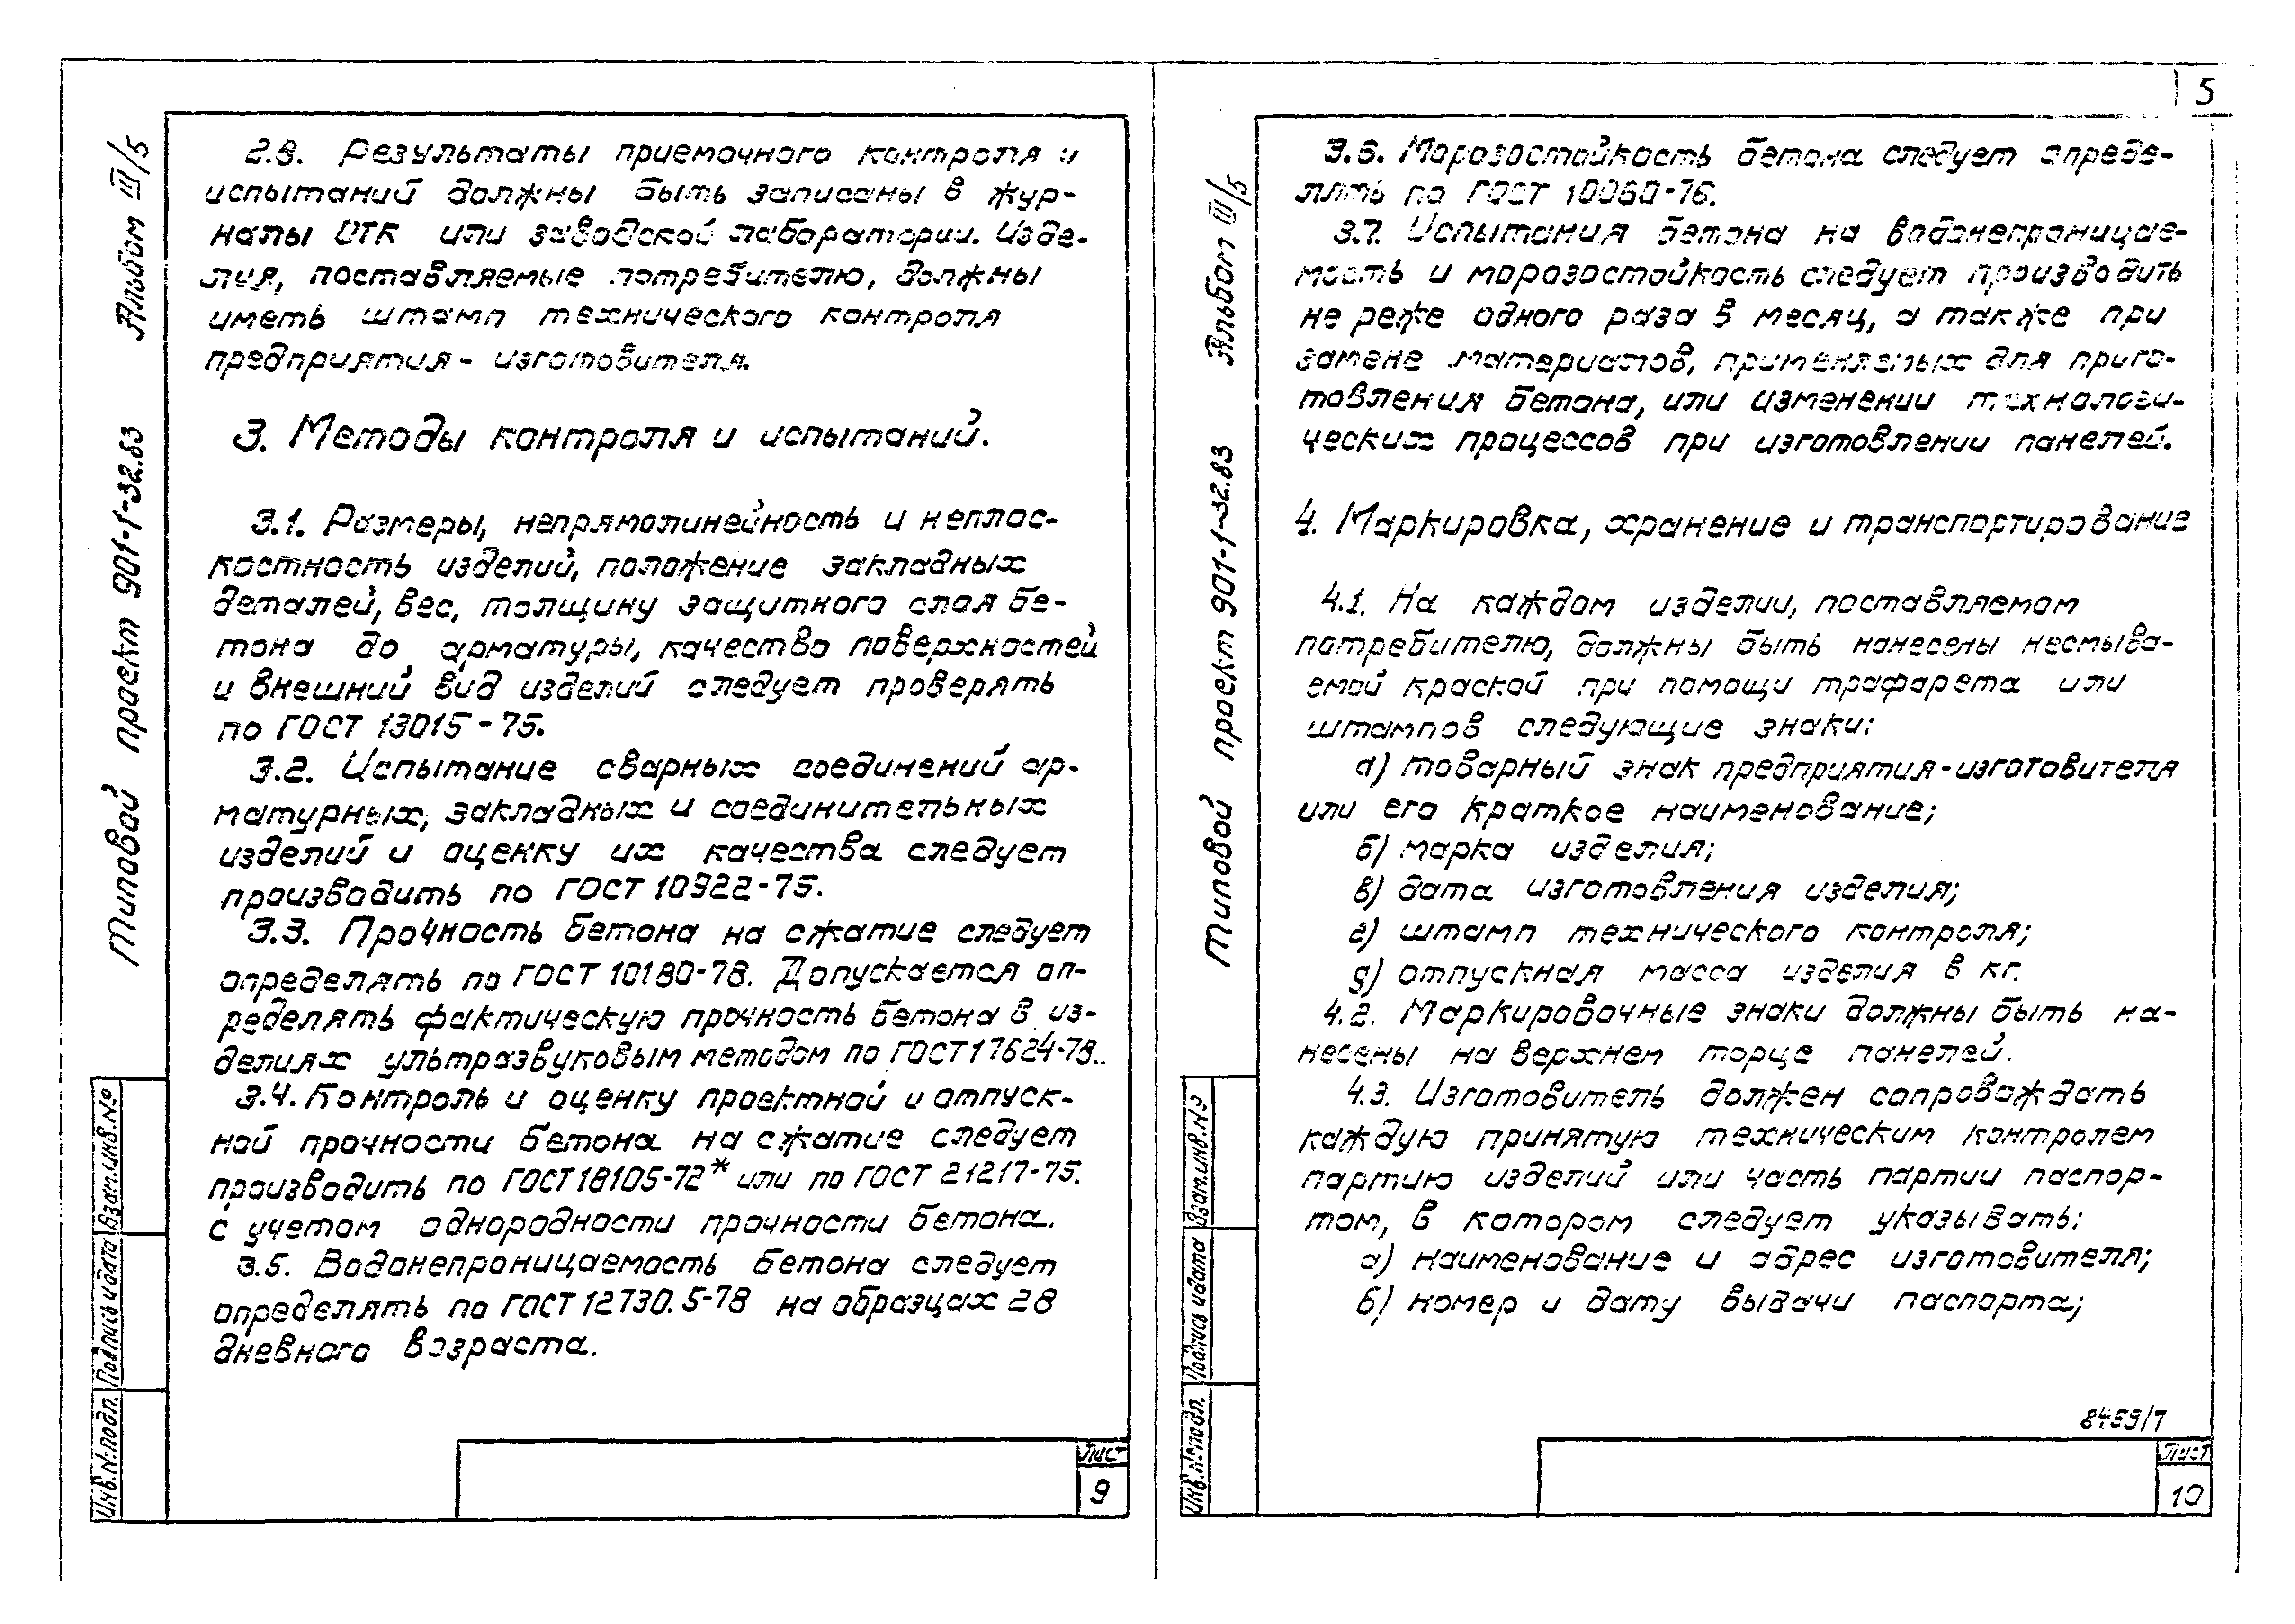 5
Типовой проект 901-1-32.83 Альбом III/5
2.8. Результаты приемочного контроля и
испытаний должны быть записаны в жур-
налы ОТК или заводской лаборатории. Изде-
лия, поставляемые потребителю, должны
иметь штамп технического контроля
предприятия - изготовителя.
3. Методы контроля и испытаний.
3.1. Размеры, непрямолинейность и неплос-
костность изделий, положение закладных
деталей, вес, толщину защитного слоя бе-
тона до арматуры, качество поверхностей
и внешний вид изделий следует проверять
по ГОСТ 13015-75.
3.2. Испытание сварных соединений ар-
матурных, закладных и соединительных
изделий и оценку их качества следует
производить по ГОСТ 10922-75.
3.3. Прочность бетона на сжатие следует
определять по ГОСТ 10180-78. Допускается оп-
ределять фактическую прочность бетона в из-
делиях ультразвуковым методом по ГОСТ 17624-78.
3.4. Контроль и оценку проектной и отпуск-
ной прочности бетона на сжатие следует
производить по ГОСТ 18105-72* или по ГОСТ 21217-75.
с учетом однородности прочности бетона.
3.5. Водонепроницаемость бетона следует
определять по ГОСТ 12730.5-78 на образцах 28
дневного возраста.
Инв.№подл. Подпись и дата Взам.инв.№
Лист
9
Типовой проект 901-1-32.83 Альбом III/5
3.6. Морозостойкость бетона следует опреде-
лять по ГОСТ 10060-76.
3.7. Испытания бетона на водонепроницае-
мость и морозостойкость следует производить
не реже одного раза в месяц, а также при
замене материалов, применяемых для приго-
товления бетона, или изменении технологи-
ческих процессов при изготовлении панелей.
4. Маркировка, хранение и транспортирование
4.1. На каждом изделии, поставляемом
потребителю, должны быть нанесены несмыва-
емой краской при помощи трафарета или
штампов следующие знаки:
а) товарный знак предприятия-изготовителя
или его краткое наименование;
б) марка изделия;
в) дата изготовления изделия;
г) штамп технического контроля;
д) отпускная масса изделия в кг.
4.2. Маркировочные знаки должны быть на-
несены на верхнем торце панелей.
4.3. Изготовитель должен сопровождать
каждую принятую техническим контролем
партию изделий или часть партии паспор-
том, в котором следует указывать:
а) наименование и адрес изготовителя;
б) номер и дату выдачи паспорта;
8459/7
Инв.№подл. Подпись и дата Взам.инв.№
Лист
10